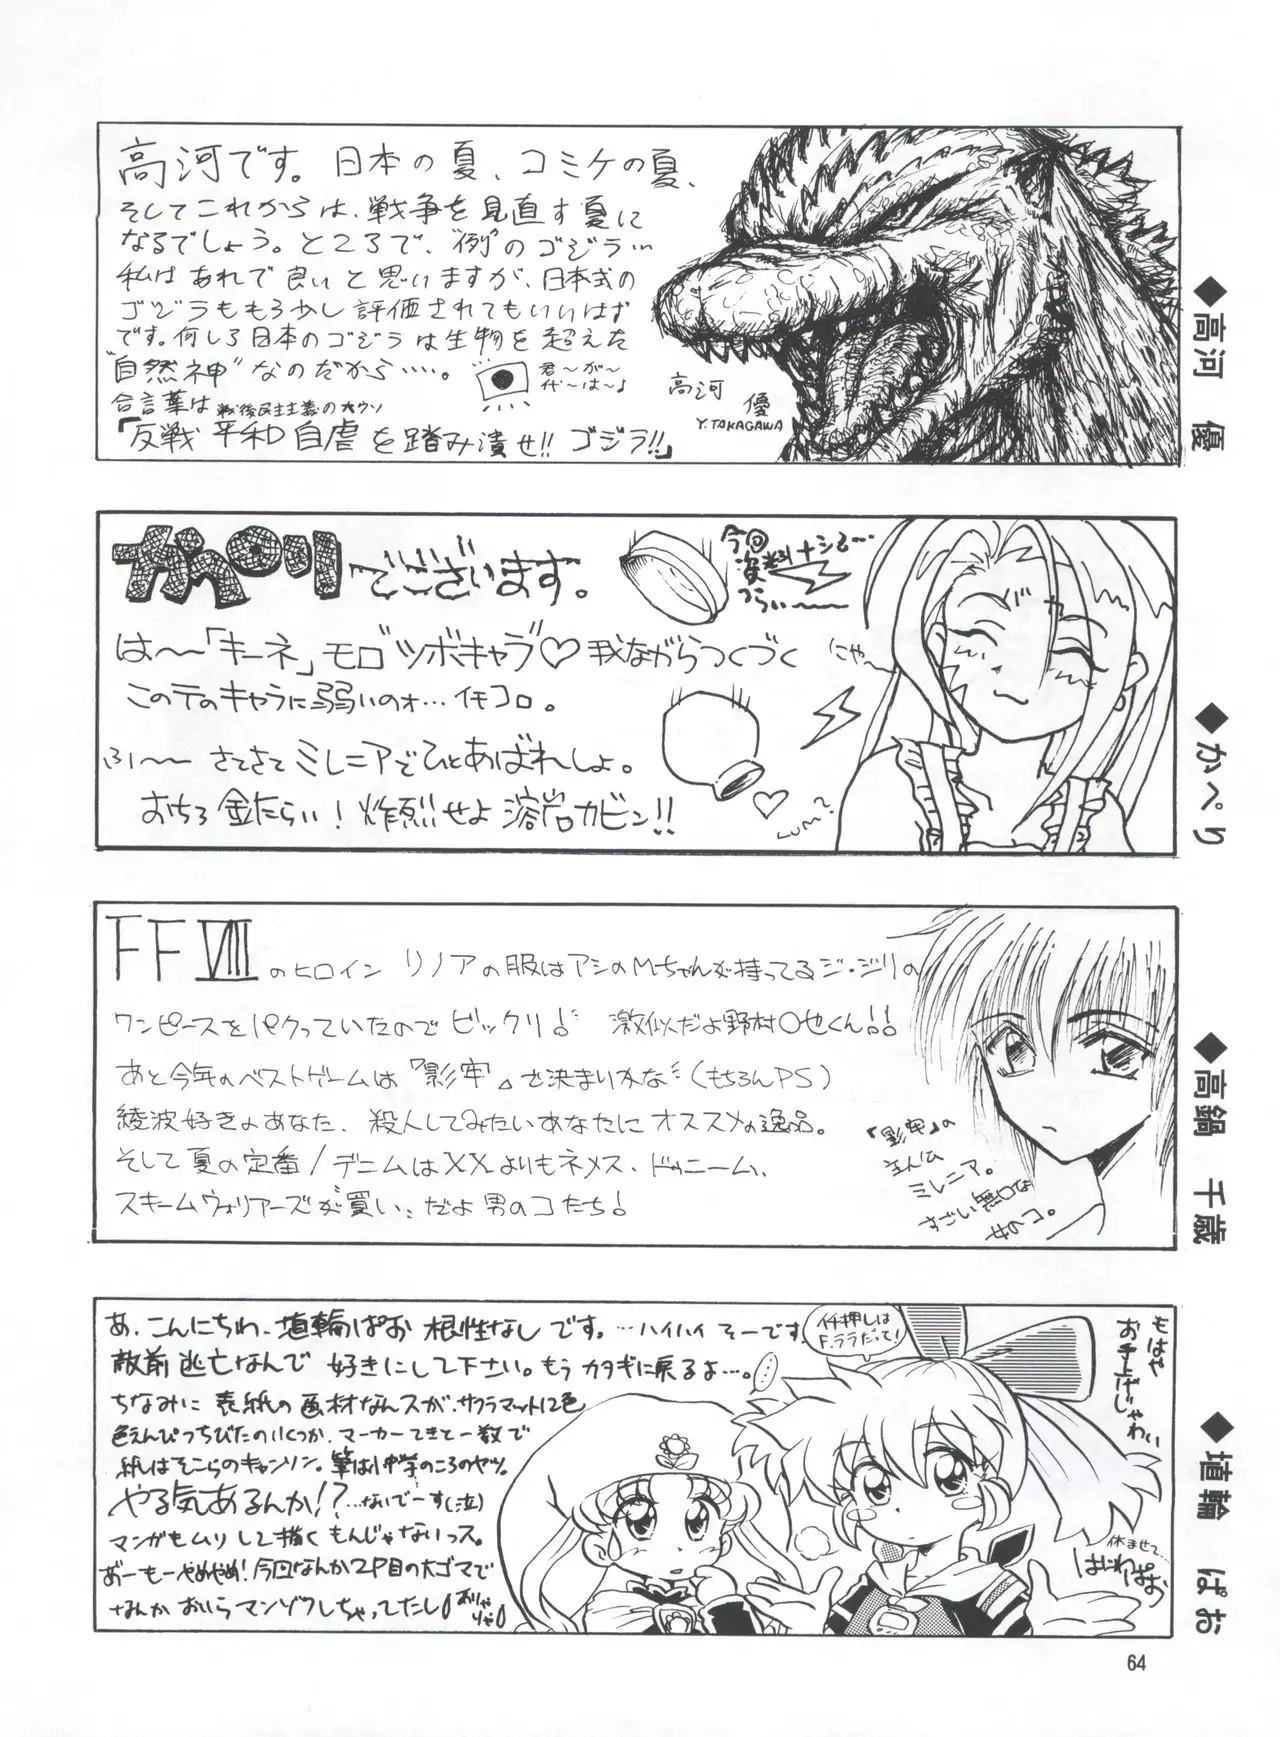 高河です。日本の夏、コミケの夏、
そしてこれからは、戦争を見直す夏に
なるでしょう。ところで、"例"のゴジラ…
私はあれで良いと思いますが、日本式の
ゴジラももう少し評価されてもいいはず
です。何しろ日本のゴジラは生物を超えた
"自然神"なのだから……。
君〜が〜
代〜は〜♪
合言葉は
戦後民主主義の大ウソ
「反戦平和自虐を踏み潰せ!! ゴジラ!!」
高河 優
Y.TAKAGAWA
◆高河 優
かぺりでございます。
今回
資料ナシで…
つらい〜〜
は〜〜「キーネ」モロ"ツボキャラ"♡我ながらつくづく
このテのキャラに弱いのォ…イモコロ。
ふ〜〜さてさてミレニアでひとあばれしょ。
おちろ金たらい!炸烈せよ溶岩カビン!!
にゃ〜
◆かぺり
FFⅧのヒロイン リノアの服はアシのMちゃんが持ってるジ・ジリの
ワンピースをパクっていたのでビックリ! 激似だよ野村〇也くん!!
あと今年のベストゲームは『影牢』で決まりかな (もちろんPS)
綾波好きなあなた、殺人してみたいあなたにオススメの逸品。
そして夏の定番/デニムはXXよりもネメス、ドゥニーム、
スキームウォリアーズが買い、だよ男のコたち!
『影牢』の
主人公
ミレニア。
すごい無口な
女のコ。
◆高鍋 千歳
あ、こんにちわ、埴輪ぱお根性なしです。…ハイハイそーです。
敵前逃亡なんで好きにして下さい。もうカタギに戻るよ…。
ちなみに表紙の画材なんスが、サクラマット12色
色えんぴつちびたのいくつか、マーカーてきとー数で
紙はそこらのキャンソン。筆は小中学のころのヤツ。
やる気あるんか!?…ないでーす(泣)
マンガもムリして描くもんじゃないっス。
あーもーやめやめ!今回なんか2P目の大ゴマで
なんかおいらマンゾクしちゃってたし!
イチ押しは
F.ララだって!
……
もはや
お手上げじゃわい
休ませて…
はにわぱお
◆埴輪 ぱお
64